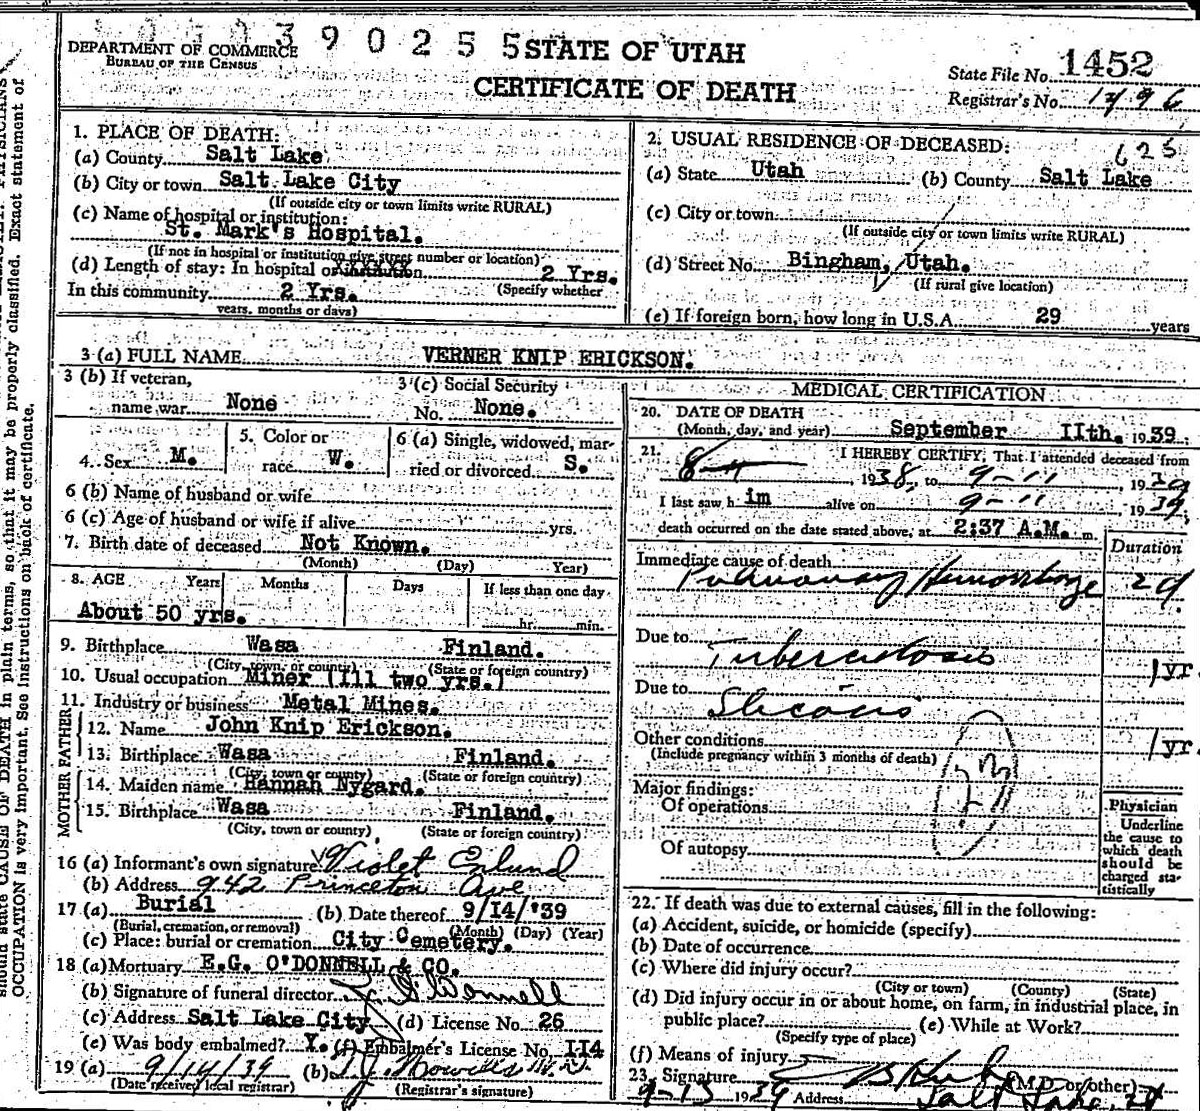 390255
DEPARTMENT OF COMMERCE
BUREAU OF THE CENSUS
STATE OF UTAH
CERTIFICATE OF DEATH
State File No. 1452
Registrar's No.
1. PLACE OF DEATH:
(a) County Salt Lake
(b) City or town Salt Lake City
(If outside city or town limits write RURAL)
(c) Name of hospital or institution:
St. Mark's Hospital.
(If not in hospital or institution give street number or location)
(d) Length of stay: In hospital or institution 2 Yrs.
(Specify whether
In this community 2 Yrs.
years, months or days)
2. USUAL RESIDENCE OF DECEASED:
625
(a) State Utah (b) County Salt Lake
(c) City or town
(If outside city or town limits write RURAL)
(d) Street No. Bingham, Utah.
(If rural give location)
(e) If foreign born, how long in U.S.A. 29 years
3 (a) FULL NAME VERNER KNIP ERICKSON.
3 (b) If veteran,
name war None
3 (c) Social Security
No. None.
4. Sex M.
5. Color or
race W.
6 (a) Single, widowed, mar-
ried or divorced S.
6 (b) Name of husband or wife
6 (c) Age of husband or wife if alive yrs.
7. Birth date of deceased Not Known.
(Month) (Day) Year)
8. AGE Years Months Days If less than one day
About 50 yrs. hr. min.
9. Birthplace Wasa Finland.
(City, town, or county) (State or foreign country)
10. Usual occupation Miner (Ill two yrs.)
11. Industry or business Metal Mines.
FATHER
12. Name John Knip Erickson.
13. Birthplace Wasa Finland.
(City, town or county) (State or foreign country)
MOTHER
14. Maiden name Hannah Nygard.
15. Birthplace Wasa Finland.
(City, town or county) (State or foreign country)
16 (a) Informant's own signature Violet Enlund
(b) Address 942 Princeton Ave
17 (a) Burial (b) Date thereof 9/14/'39
(Burial, cremation, or removal) (Month) (Day) (Year)
(c) Place: burial or cremation City Cemetery.
18 (a) Mortuary E.G. O'DONNELL & CO.
(b) Signature of funeral director O'Donnell
(c) Address Salt Lake City (d) License No. 26
(e) Was body embalmed? Y. (f) Embalmer's License No. 114
19 (a) 9/14/39 (b)
(Date received local registrar) (Registrar's signature)
MEDICAL CERTIFICATION
20. DATE OF DEATH
(Month, day, and year) September 11th. 1939.
21. I HEREBY CERTIFY, That I attended deceased from
1938, to 9-11, 1939
I last saw him alive on 9-11 1939,
death occurred on the date stated above, at 2:37 A.M. m.
Duration
Immediate cause of death
Pulmonary Hemorrhage 2d.
Due to Tuberculosis 1 yr.
Due to Silicosis 1 yr.
Other conditions
(Include pregnancy within 3 months of death)
Major findings:
Of operations
Of autopsy
Physician
Underline
the cause to
which death
should be
charged sta-
tistically
22. If death was due to external causes, fill in the following:
(a) Accident, suicide, or homicide (specify)
(b) Date of occurrence
(c) Where did injury occur?
(City or town) (County) (State)
(d) Did injury occur in or about home, on farm, in industrial place, in
public place? (e) While at Work?
(Specify type of place)
(f) Means of injury
23. Signature (M.D. or other)
9-13 1939 Address Salt Lake
should state CAUSE OF DEATH in plain terms, so that it may be properly classified. Exact statement of
OCCUPATION is very important. See instructions on back of certificate.